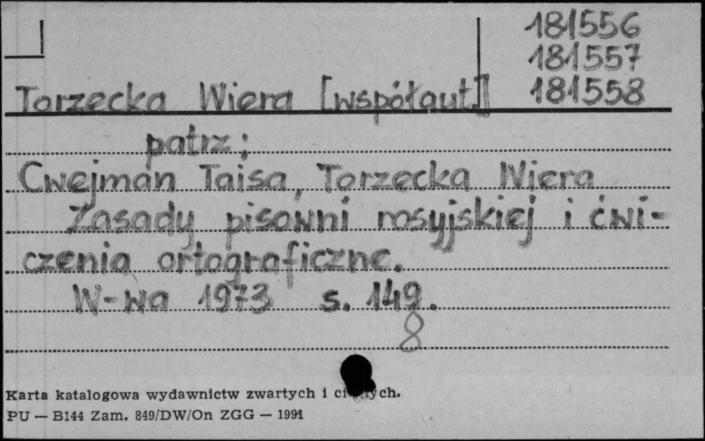 181556
181557
Torzecka Wiera [współaut.] 181558
patrz:
Cwejman Taisa, Torzecka Wiera
Zasady pisowni rosyjskiej i ćwi-
czenia ortograficzne.
W-wa 1973 s. 149.
8
Karta katalogowa wydawnictw zwartych i ch.
PU — B144 Zam. 849/DW/On ZGG — 1991